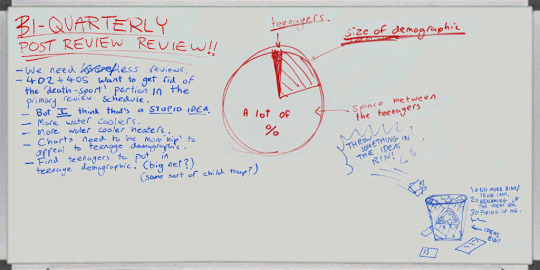 BI-QUARTERLY
POST REVIEW REVIEW!!
- We need less reviews.
- 402 + 405 want to get rid of
the 'death-sport' portion in the
primary review schedule.
- But I think that's a STUPID IDEA.
- More water coolers.
- More water cooler heaters.
- Charts need to be more 'hip' to
appeal to teenage demographic.
- Find teenagers to put in
teenage demographic. (big net?)
(some sort of child trap?)
teenagers.
size of demographic
A lot of
%
space between
the teenagers
THROW
SOMETHING IN
THE IDEAS
BIN!
1) NO MORE BINS/
TRASH CANS.
2) RENAMING OF
THE IDEAS BIN.
3) FIRING OF ME.
IDEAS
BIN!